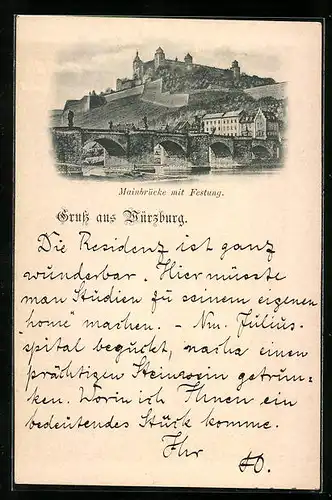 Mainbrücke mit Festung.
Gruß aus Würzburg.
Die Residenz ist ganz
wunderbar. Hier müsste
man Studien zu seinem eigenen
„home“ machen. – Nm. Julius-
spital beguckt, nachs einen
prächtigen Steinwein getrun-
ken. Worin ich Ihnen ein
bedeutendes Stück komme.
Ihr